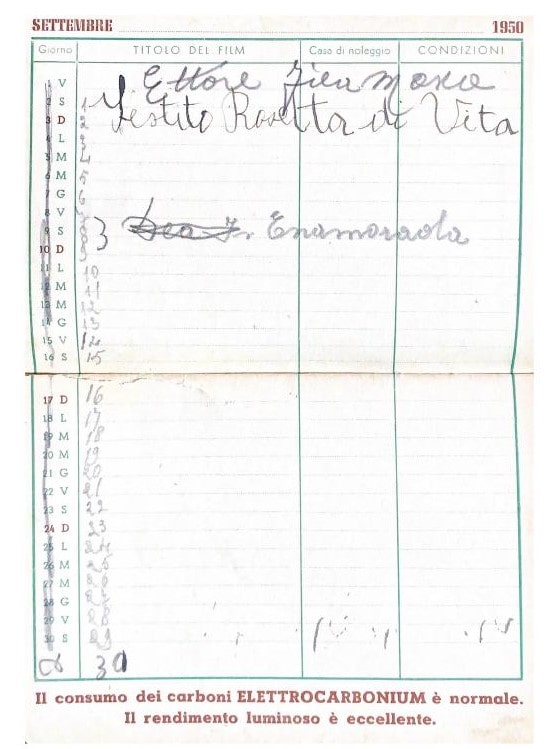 SETTEMBRE 1950
Giorno TITOLO DEL FILM Casa di noleggio CONDIZIONI
1 V Ettore
2 S 1 Vestito Rosetta di Vita
3 D 2
4 L 3
5 M 4
6 M 5
7 G 6
8 V
9 S 3 Enamorada
10 D
11 L 10
12 M 11
13 M 12
14 G 13
15 V 14
16 S 15
17 D 16
18 L 17
19 M 18
20 M 19
21 G 20
22 V 21
23 S 22
24 D 23
25 L 24
26 M 25
27 M
28 G
29 V
30 S 29
D 30
Il consumo dei carboni ELETTROCARBONIUM è normale.
Il rendimento luminoso è eccellente.